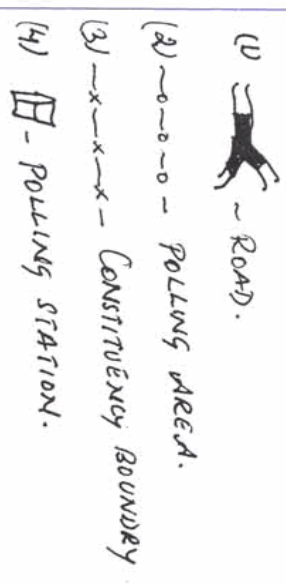 (1) ~ ROAD.
(2) ~o~o~o - POLLING AREA.
(3) -x-x-x- CONSTITUENCY BOUNDRY
(4) - POLLING STATION.